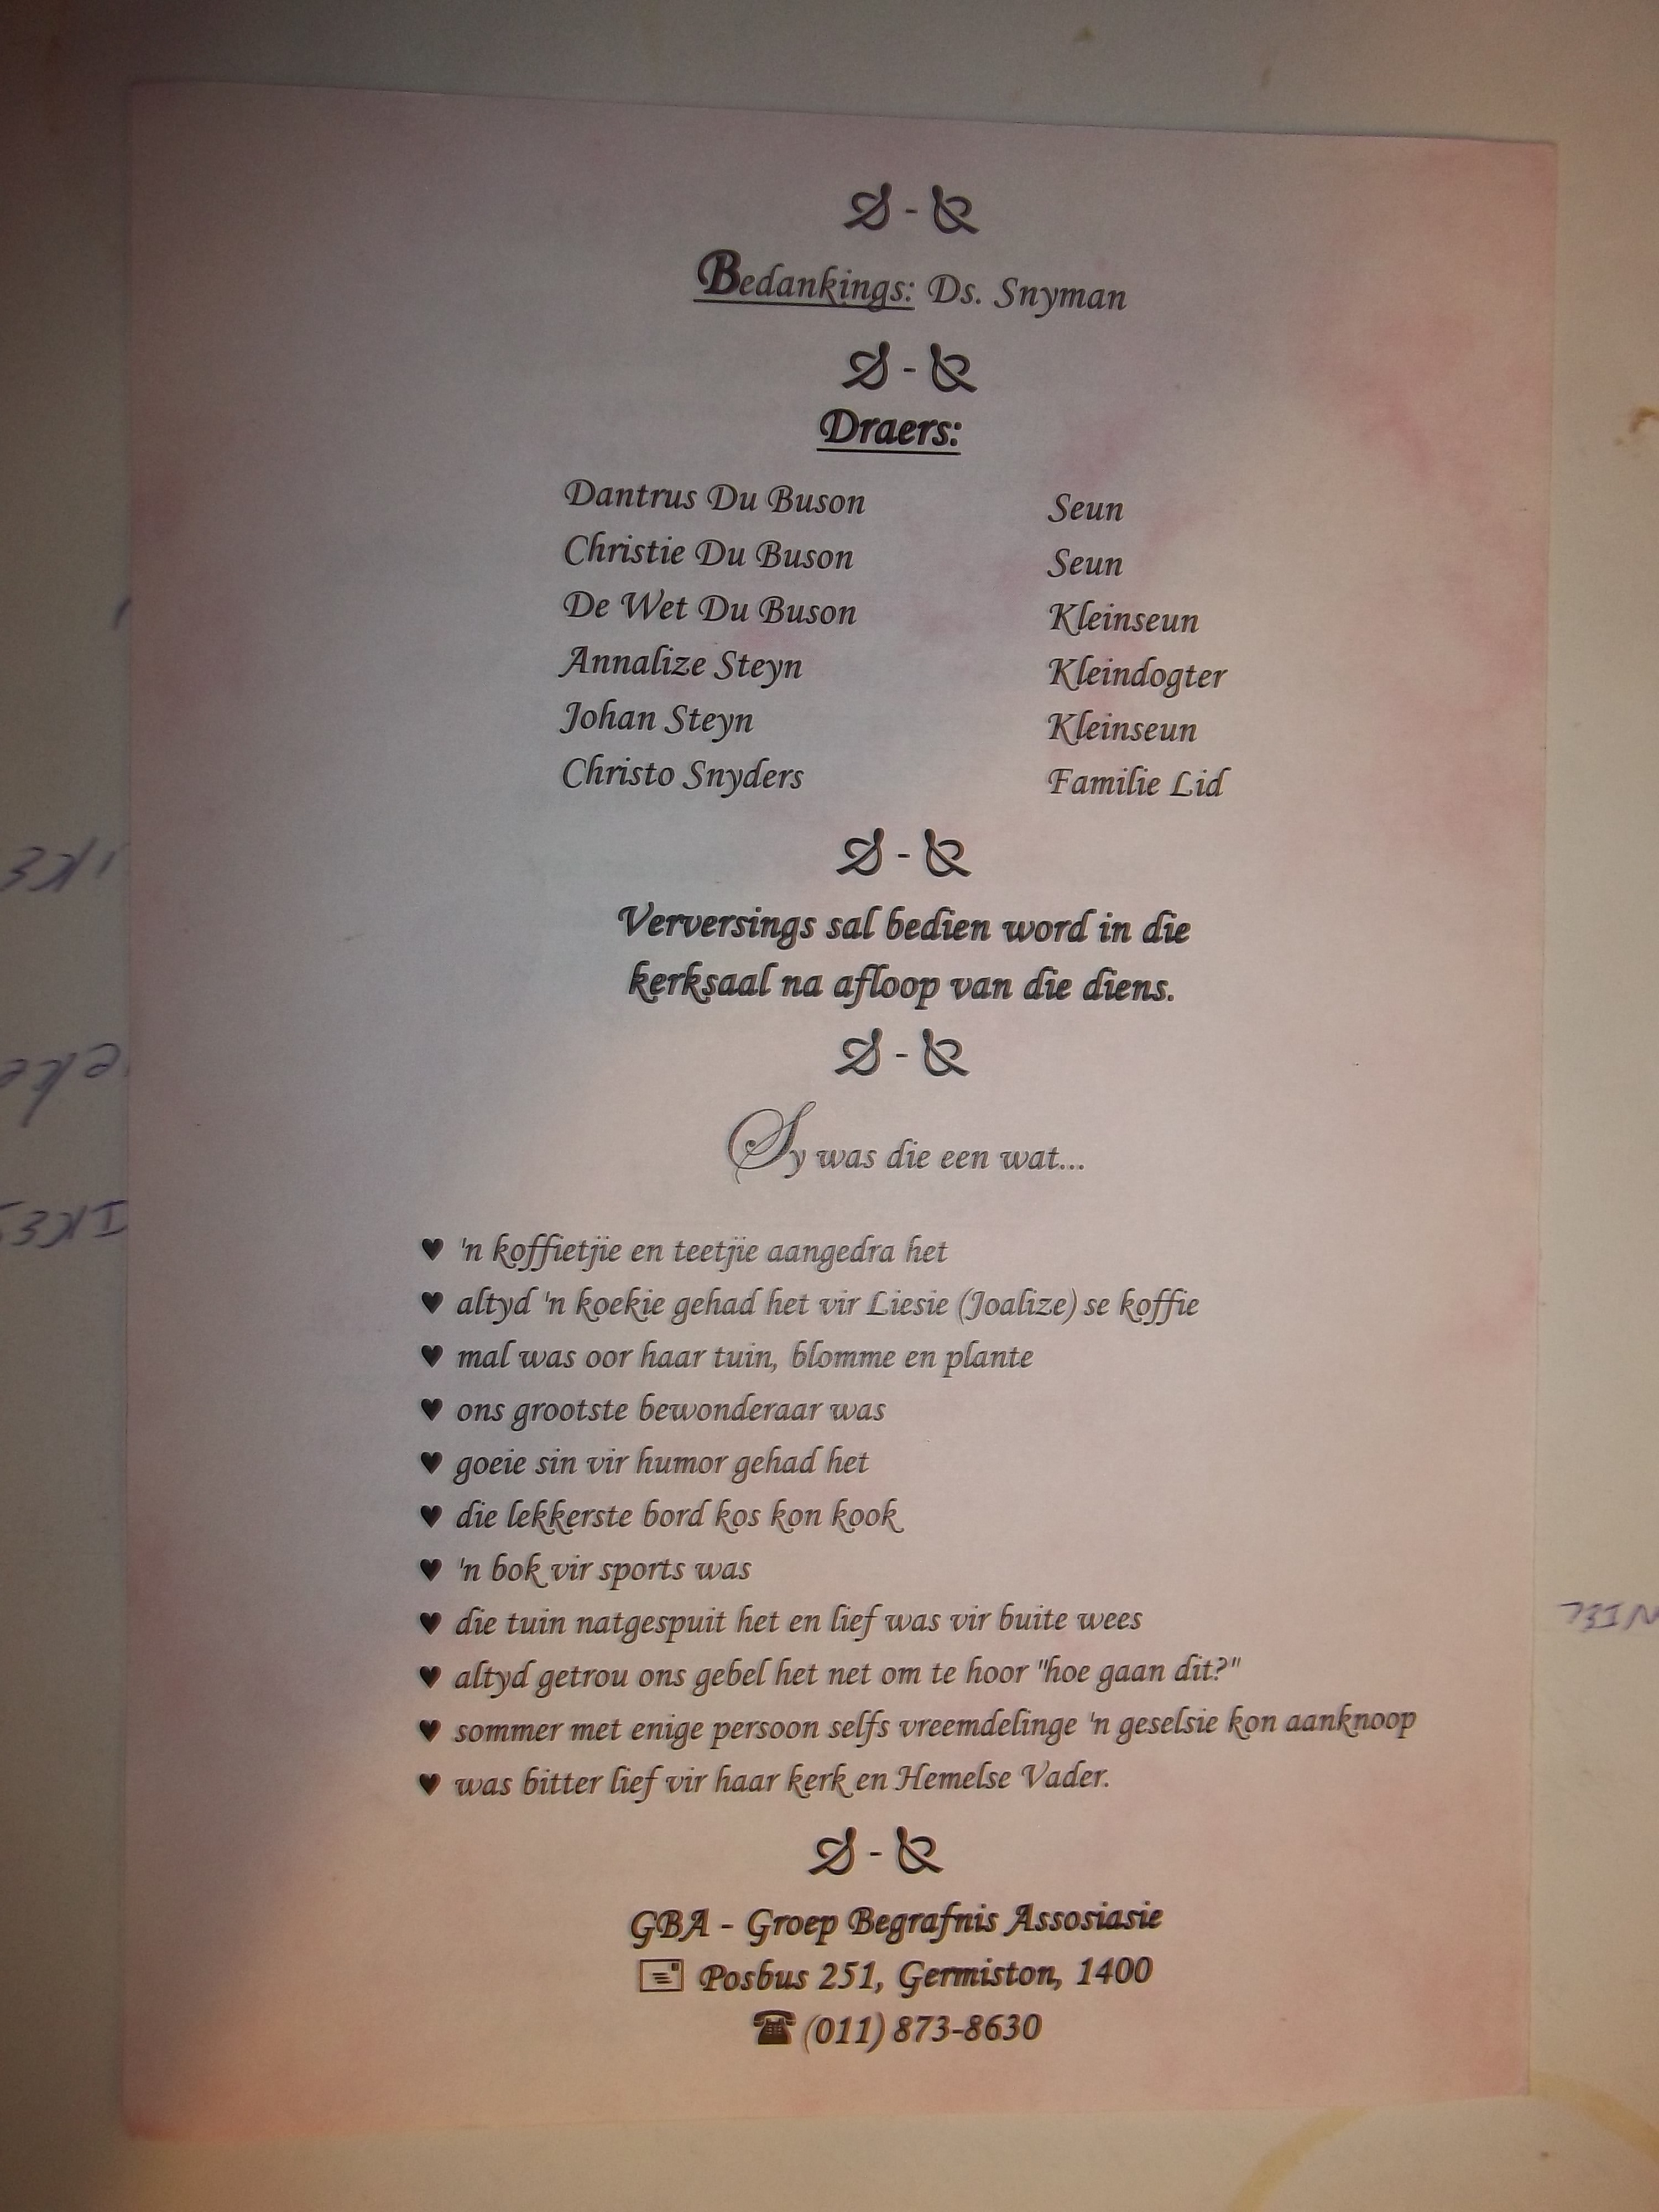 Bedankings: Ds. Snyman
Draers:
Dantrus Du Buson Seun
Christie Du Buson Seun
De Wet Du Buson Kleinseun
Annalize Steyn Kleindogter
Johan Steyn Kleinseun
Christo Snyders Familie Lid
Verversings sal bedien word in die
kerksaal na afloop van die diens.
Sy was die een wat...
♥ 'n koffietjie en teetjie aangedra het
♥ altyd 'n koekie gehad het vir Liesie (Joalize) se koffie
♥ mal was oor haar tuin, blomme en plante
♥ ons grootste bewonderaar was
♥ goeie sin vir humor gehad het
♥ die lekkerste bord kos kon kook
♥ 'n bok vir sports was
♥ die tuin natgespuit het en lief was vir buite wees
♥ altyd getrou ons gebel het net om te hoor "hoe gaan dit?"
♥ sommer met enige persoon selfs vreemdelinge 'n geselsie kon aanknoop
♥ was bitter lief vir haar kerk en Hemelse Vader.
GBA - Groep Begrafnis Assosiasie
Posbus 251, Germiston, 1400
(011) 873-8630